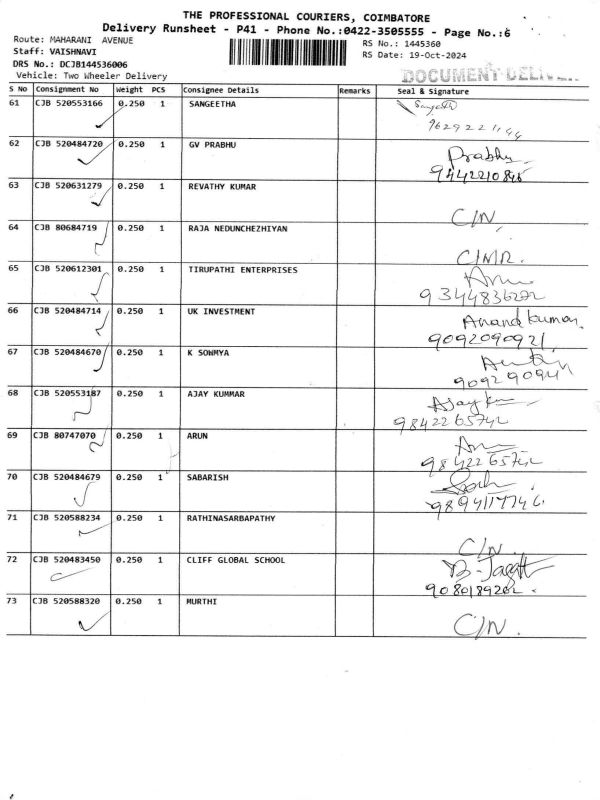 THE PROFESSIONAL COURIERS, COIMBATORE
Delivery Runsheet - P41 - Phone No.:0422-3505555 - Page No.:6
Route: MAHARANI AVENUE
Staff: VAISHNAVI
DRS No.: DCJB144536006
Vehicle: Two Wheeler Delivery
RS No.: 1445360
RS Date: 19-Oct-2024
DOCUMENT
S No Consignment No Weight PCS Consignee Details Remarks Seal & Signature
61 CJB 520553166 0.250 1 SANGEETHA Sangeetha
62 CJB 520484720 0.250 1 GV PRABHU Prabhu
63 CJB 520631279 0.250 1 REVATHY KUMAR C/N
64 CJB 80684719 0.250 1 RAJA NEDUNCHEZHIYAN
65 CJB 520612301 0.250 1 TIRUPATHI ENTERPRISES
66 CJB 520484714 0.250 1 UK INVESTMENT Anand kumar
9092090921
67 CJB 520484670 0.250 1 K SOWMYA
68 CJB 520553187 0.250 1 AJAY KUMMAR
9842265742
69 CJB 80747070 0.250 1 ARUN
9842265742
70 CJB 520484679 0.250 1 SABARISH
71 CJB 520588234 0.250 1 RATHINASARBAPATHY C/N
72 CJB 520483450 0.250 1 CLIFF GLOBAL SCHOOL
73 CJB 520588320 0.250 1 MURTHI C/N